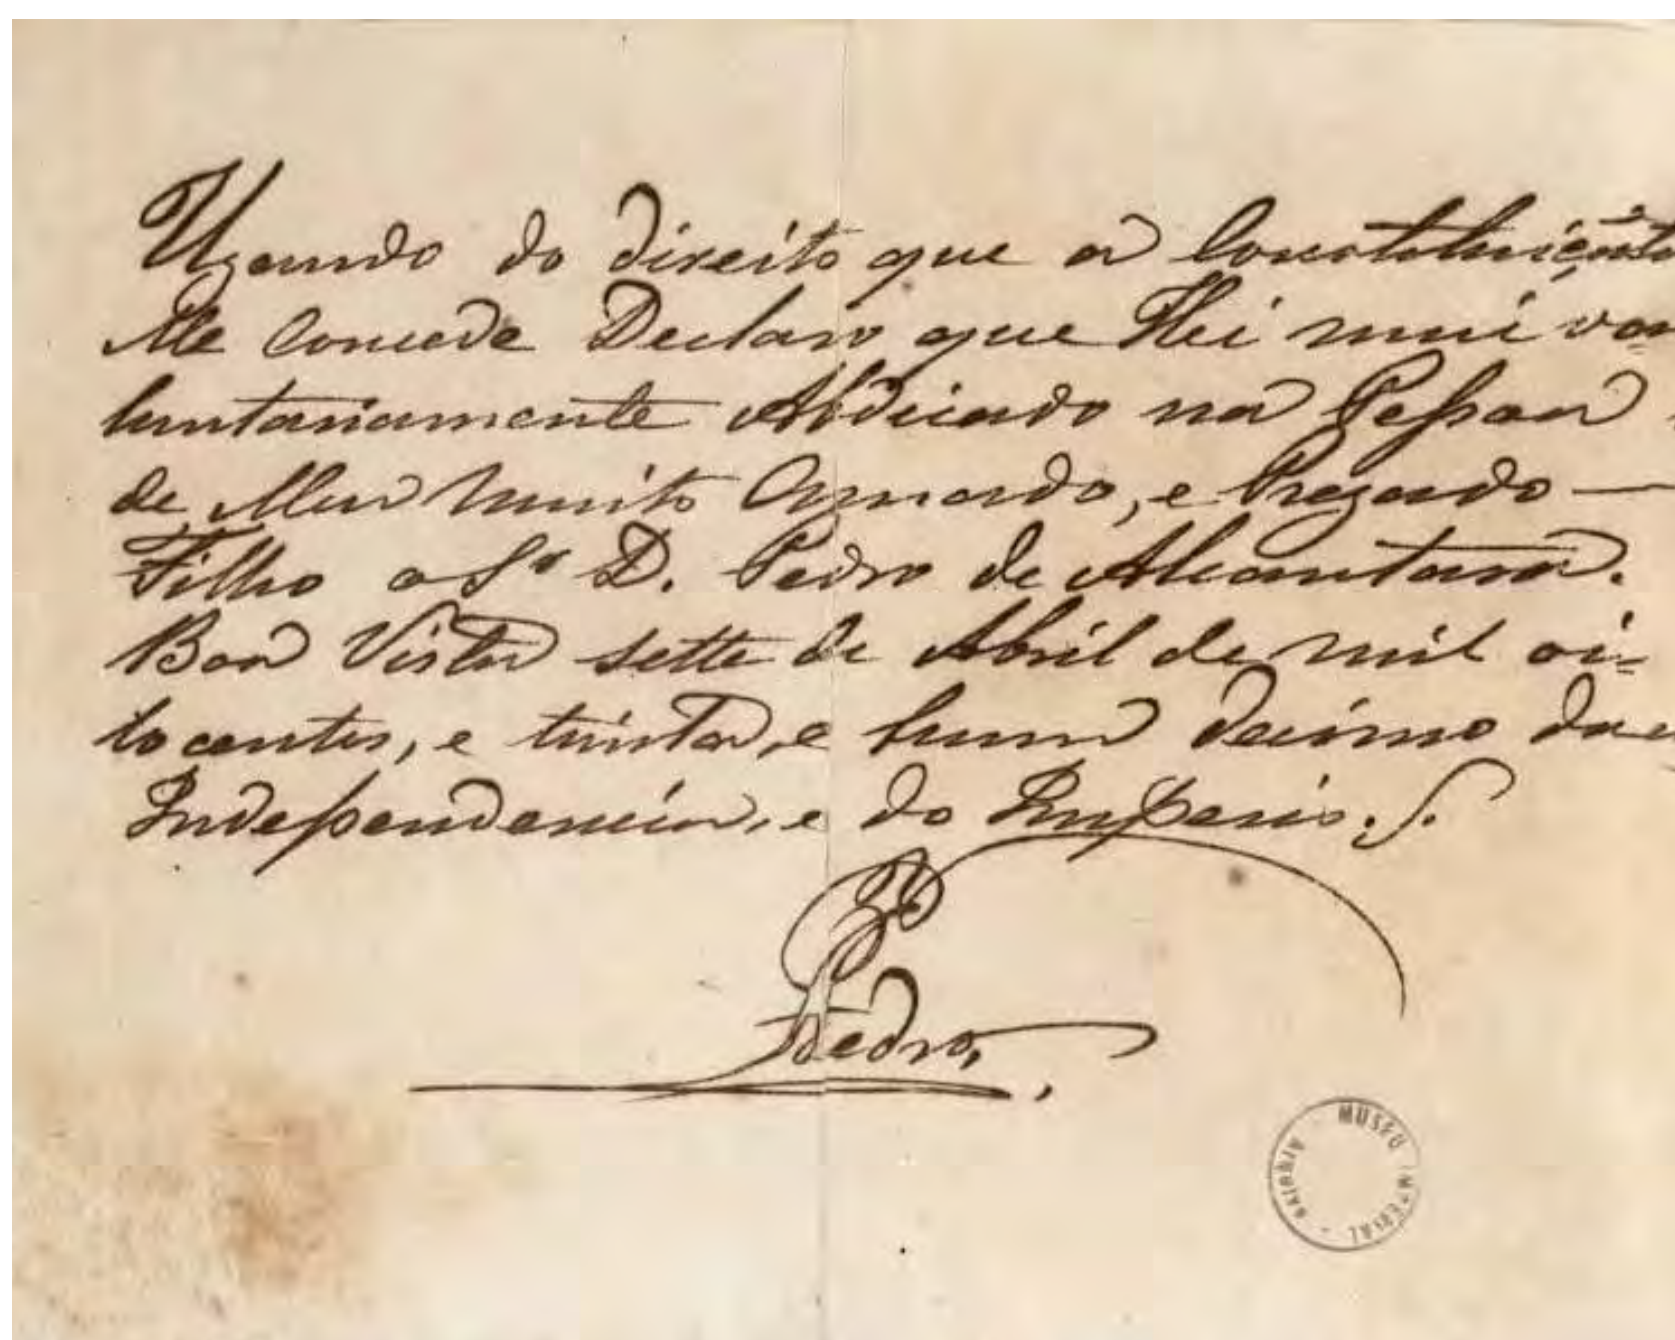 Uzando do direito que a Constituição
Me concede Declaro que Hei mui vo=
luntariamente Abdicado na Pessoa
de Meu muito Amado, e Prezado —
Filho o Sr. D. Pedro de Alcantara.
Boa Vista sette de Abril de mil oi=
to centos, e trinta, e hum decimo da
Independencia, e do Imperio.
Pedro
MUSEU IMPERIAL - ARQUIVO -